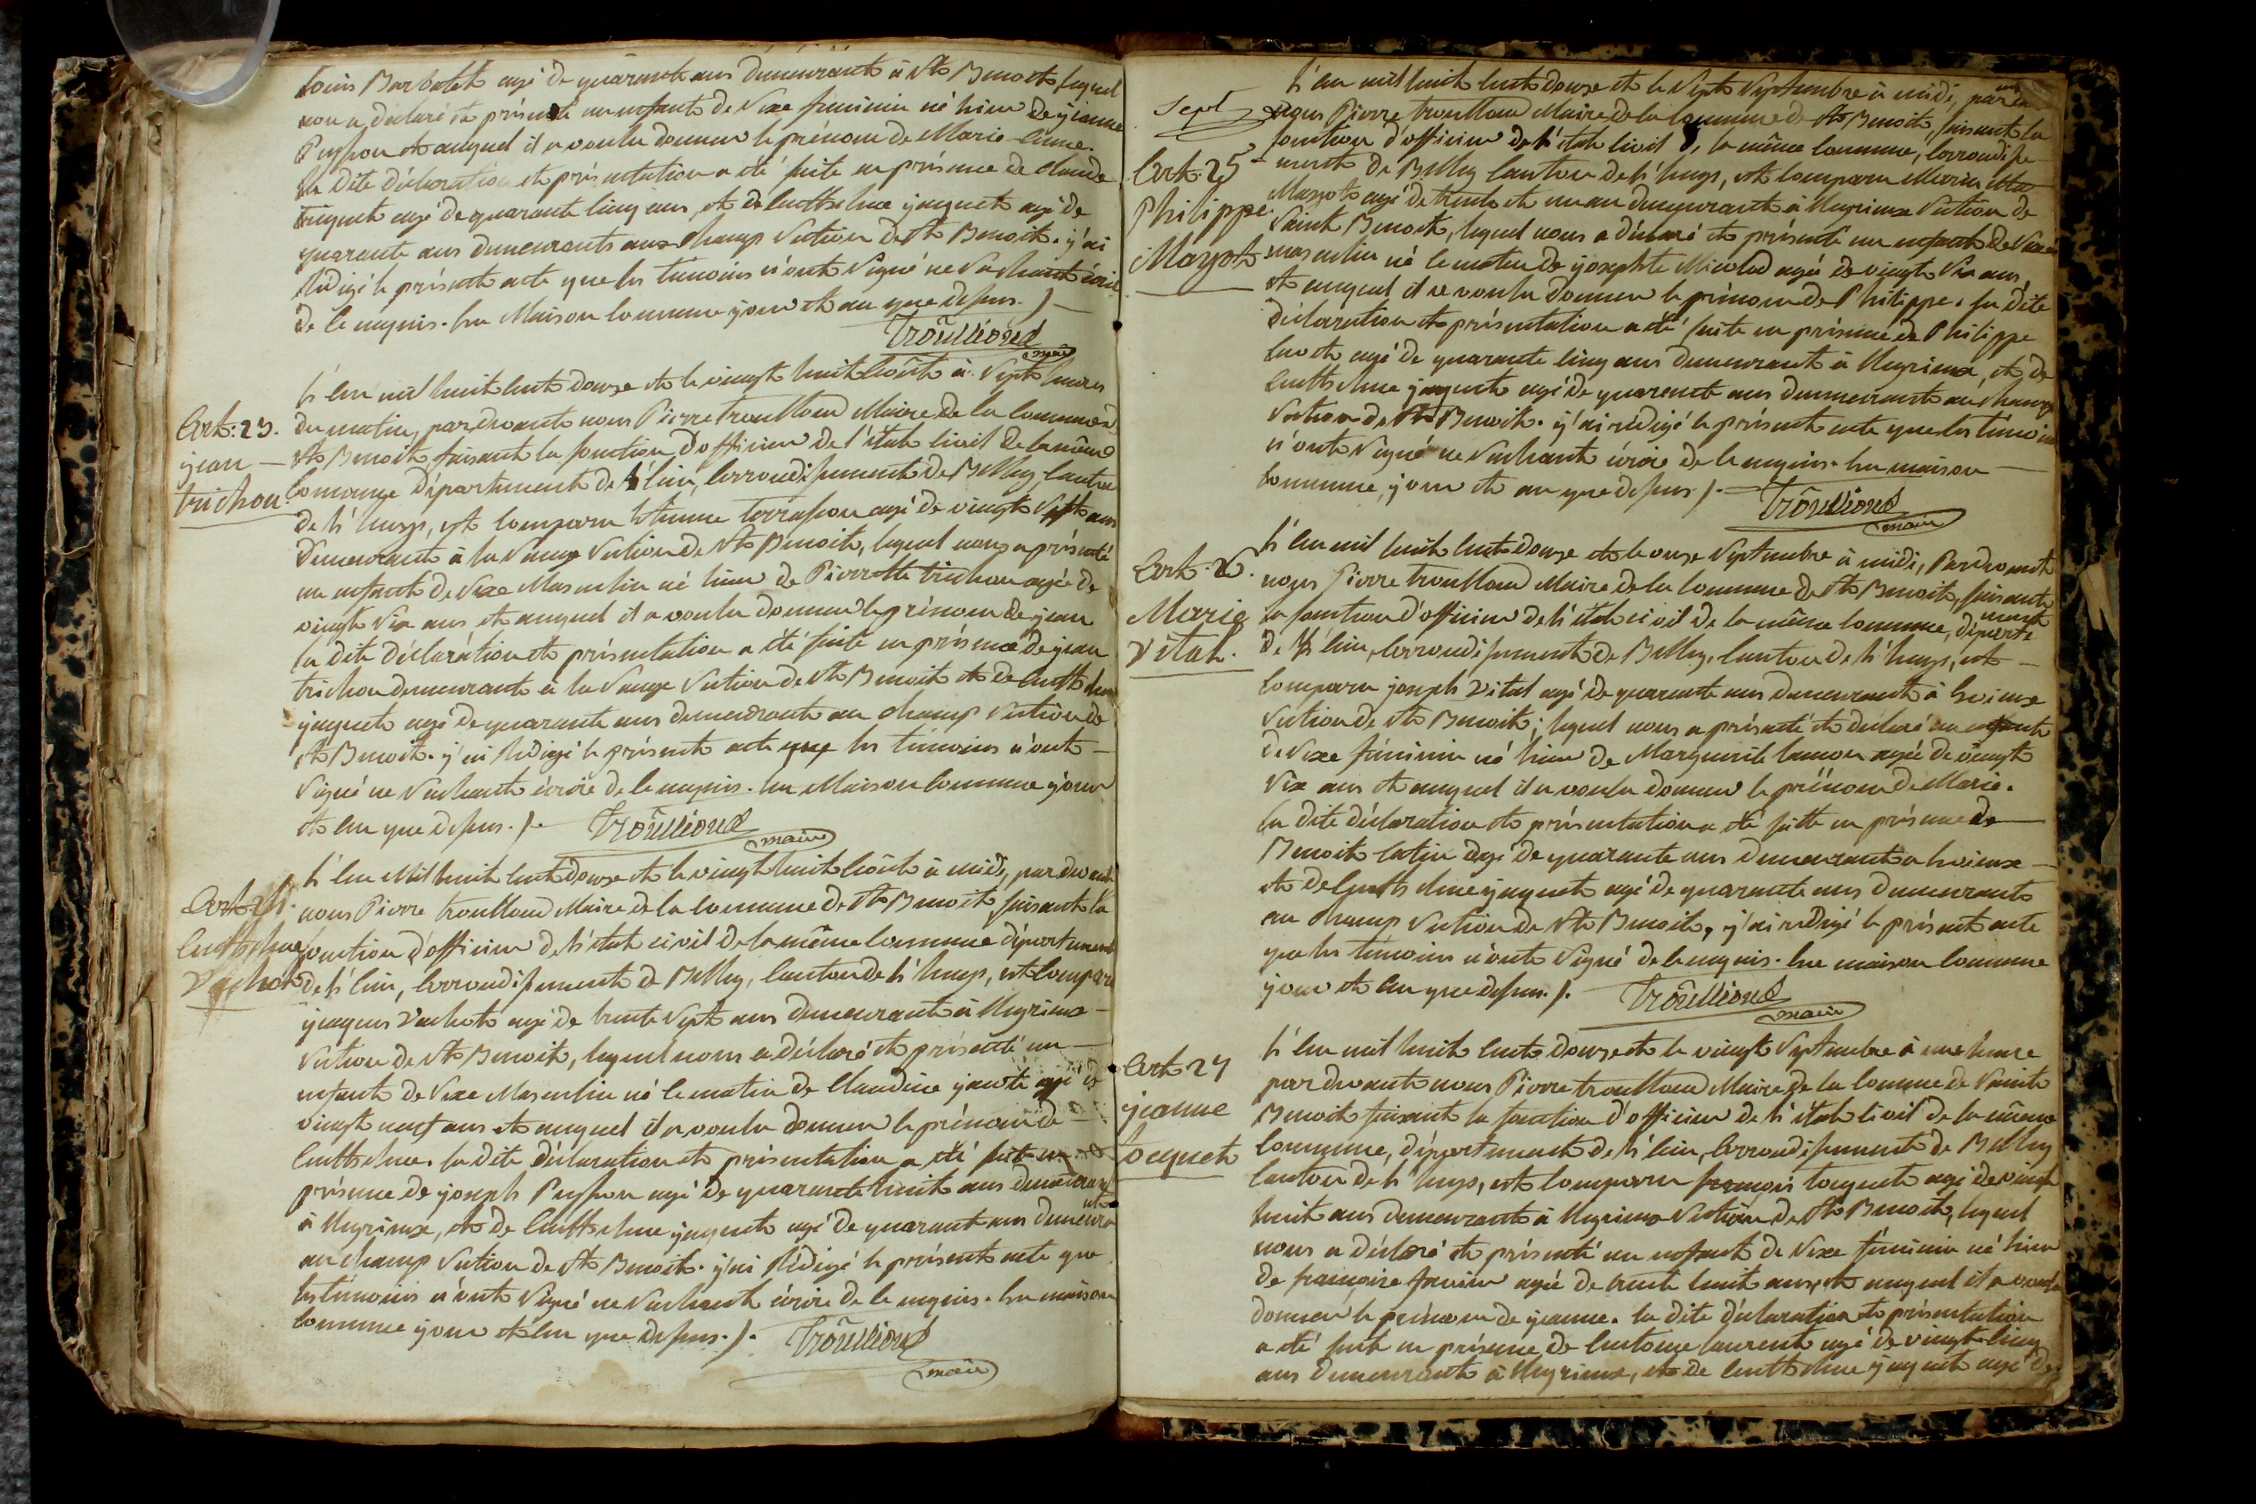 Louis Barbolet agé de quarante ans demeurant à St Benoit lequel
nous a déclaré et présenté un enfant de sexe féminin né hier de jeanne
et auquel il a voulu donner le prénom de Marie
la dite déclaration et présentation a été faite en présence de claude
juiquet agé de quarante cinq ans, et de Anthelme jaquet agé de
quarante ans demeurants aux champ section de St Benoit. j'ai
Rédigé le présent acte que les témoins n'ont signé ne sachant écrire
de ce enquis. En Maison commune jour et an que dessus.
Trouilloud
maire
L'an mil huit cent douze et le vingt huit Aoûte à sept heures
Art: 23. du matin, pardevant nous Pierre trouilloud Maire de la commune de
jean St Benoit, faisant la fonction d'officier de l'état civil de la même
trichon commune département de L'Ain, Arrondissement de Belley canton
de L'huys, est comparu Etienne terrasson agé de vingt sept ans
Demeurant à la Sauge section de St Benoit, lequel nous a présenté
un enfant de sexe Masculin né hier de Pierrette trichon agée de
vingt six ans et auquel il a voulu donner le prénom de jean
la dite déclaration et présentation a été faite en présence de jean
trichon demeurant à la Sauge section de St Benoit et de Anthelme
jaquet agé de quarante ans demeurant au champ section de
St Benoit. j'ai Rédigé le présent acte que les témoins n'ont
signé ne sachant écrire de ce enquis. En Maison commune jour
et An que dessus.
Trouilloud
maire
L'An Mil huit cent douze et le vingt huit Aoûte à midi, par devant
Art 24. nous Pierre trouilloud Maire de la commune de St Benoit faisant la
Anthelme fonction d'officier de L'état civil de la même commune département
Vachot de L'Ain, Arrondissement de Belley, canton de L'huys, est comparu
jaques Vachot agé de trente sept ans demeurant à Ugrieux
section de St Benoit, lequel nous a déclaré et présenté un
enfant de sexe Masculin né ce matin de Claudine agé de
vingt neuf ans et auquel il a voulu donner le prénom de
Anthelme. la dite déclaration et présentation a été faite en
présence de joseph agé de quarante huit ans demeurant
à Ugrieux, et de Anthelme jaquet agé de quarante ans demeurant
au champ section de St Benoit. j'ai Rédigé le présent acte que
les témoins n'ont signé ne sachant écrire de ce enquis. En maison
commune jour et An que dessus.
Trouilloud
maire
L'an mil huit cent douze et le sept septembre à midi, par devant
Sept nous Pierre trouilloud Maire de la commune de St Benoit, faisant la
fonction d'officier de L'état civil de la même commune, Arrondisse-
Art: 25 ment de Belley canton de L'huys, est comparu Marin
Philippe Mazot agé de trente et un an demeurant à Ugrieux section de
Saint Benoit, lequel nous a déclaré et présenté un enfant de sexe
Mazot masculin né ce matin de josephte Micoud agée de vingt six ans,
et auquel il a voulu donner le prénom de Philippe. la dite
déclaration et présentation a été faite en présence de Philippe
agé de quarante cinq ans demeurant à Ugrieux, et de
Anthelme jaquet agé de quarante ans demeurant au champ
section de St Benoit. j'ai rédigé le présent acte que les témoins
n'ont signé ne sachant écrire de ce enquis. En maison
commune, jour et an que dessus.
Trouilloud
maire
L'An mil huit cent douze et le onze septembre à midi, Pardevant
Art. 26. nous Pierre trouilloud Maire de la commune de St Benoit, faisant
Marie la fonction d'officier de L'état civil de la même commune, département
Vital. de L'Ain, Arrondissement de Belley, canton de L'huys, est
comparu joseph Vital agé de quarante ans demeurant à
section de St Benoit; lequel nous a présenté et déclaré un enfant
de sexe féminin né hier de Marguerite agée de vingt
six ans et auquel il a voulu donner le prénom de Marie.
la dite déclaration et présentation a été faitte en présence de
Benoit agé de quarante ans demeurant à
et de Anthelme jaquet agé de quarante ans demeurant
au champ section de St Benoit, j'ai rédigé le présent acte
que les témoins n'ont signé de ce enquis. En maison commune
jour et An que dessus.
Trouilloud
maire
L'An mil huit cent douze et le vingt septembre à une heure
Art 27 par devant nous Pierre trouilloud Maire de la commune de Saint
jeanne Benoit faisant la fonction d'officier de L'état civil de la même
tocquet commune, département de L'Ain, Arrondissement de Belley
canton de L'huys, est comparu françois tocquet agé de vingt
huit ans demeurant à Ugrieux section de St Benoit, lequel
nous a déclaré et présenté un enfant de sexe féminin né hier
de françoise agée de trente huit ans, et auquel il a voulu
donner le prénom de jeanne. la dite déclaration et présentation
a été faite en présence de Antoine laurent agé de vingt cinq
ans demeurant à Ugrieux, et de Anthelme jaquet agé de